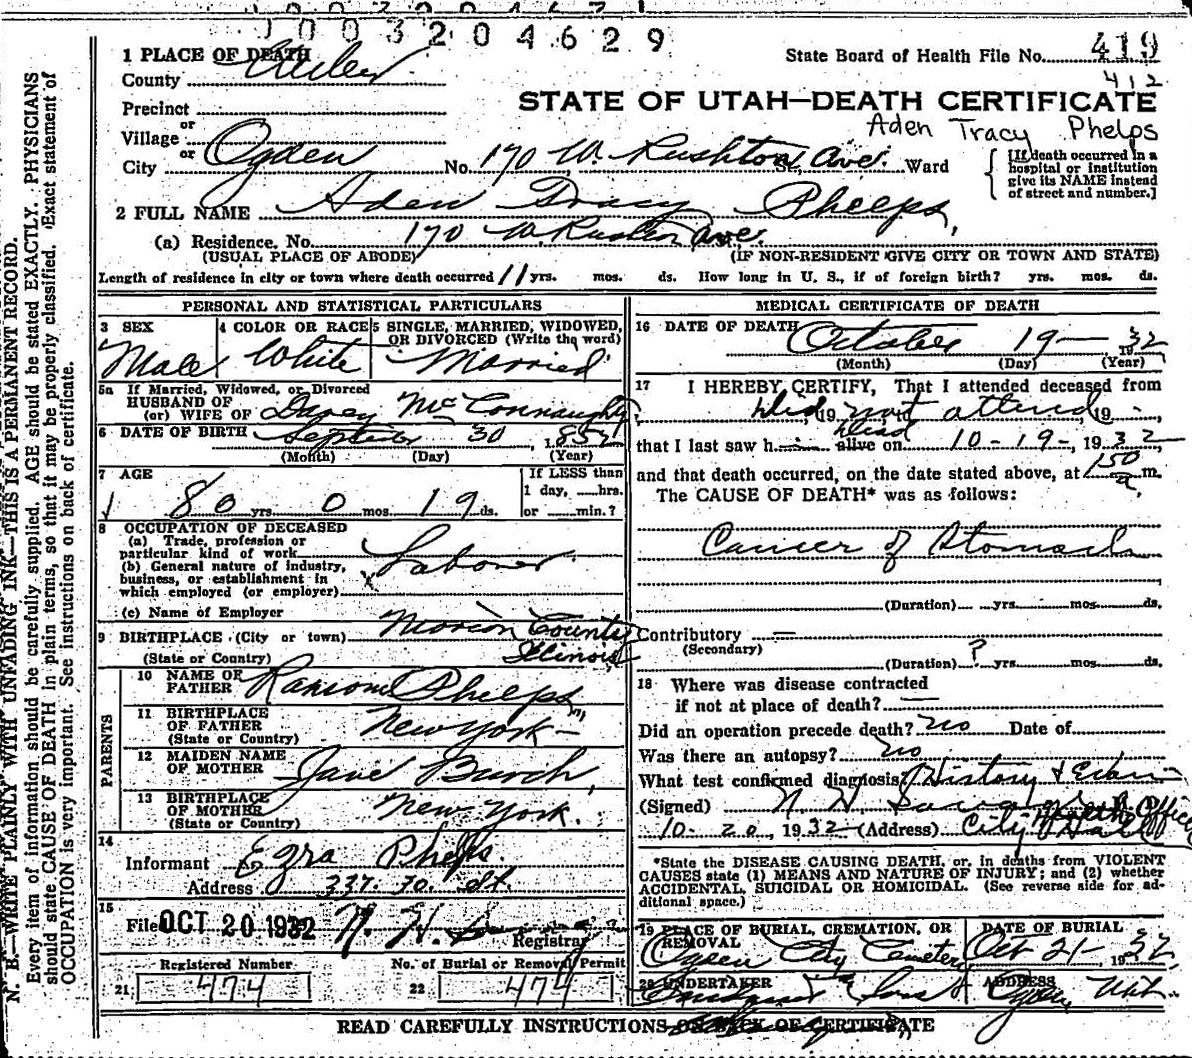 1003204629
1 PLACE OF DEATH
County Weber
State Board of Health File No. 419
412
Precinct
or
Village
or
STATE OF UTAH—DEATH CERTIFICATE
Aden Tracy Phelps
City Ogden No. 170 W. Rushton St., Ave. Ward
[If death occurred in a hospital or institution give its NAME instead of street and number.]
2 FULL NAME Aden Tracy Phelps,
(a) Residence, No. 170 W. Rushton Ave.
(USUAL PLACE OF ABODE) (IF NON-RESIDENT GIVE CITY OR TOWN AND STATE)
Length of residence in city or town where death occurred 11 yrs. mos. ds. How long in U. S., if of foreign birth? yrs. mos. ds.
PERSONAL AND STATISTICAL PARTICULARS
3 SEX Male
4 COLOR OR RACE White
5 SINGLE, MARRIED, WIDOWED, OR DIVORCED (Write the word) Married
5a If Married, Widowed, or Divorced
HUSBAND OF
(or) WIFE OF McConnaughty
6 DATE OF BIRTH 30, 1852
(Month) (Day) (Year)
7 AGE
80 yrs. 0 mos. 19 ds.
If LESS than
1 day, hrs.
or min.?
8 OCCUPATION OF DECEASED
(a) Trade, profession or
particular kind of work Laborer
(b) General nature of industry,
business, or establishment in
which employed (or employer)
(c) Name of Employer
9 BIRTHPLACE (City or town) Marion County
(State or Country) Illinois
PARENTS
10 NAME OF FATHER Ransom Phelps,
11 BIRTHPLACE OF FATHER (State or Country) New York
12 MAIDEN NAME OF MOTHER Jane Burch,
13 BIRTHPLACE OF MOTHER (State or Country) New York.
14
Informant Ezra Phelps.
Address 337. 30. St.
15
Filed OCT 20 1932 N. H.
Registrar
Registered Number No. of Burial or Removal Permit
21 474 22 474
MEDICAL CERTIFICATE OF DEATH
16 DATE OF DEATH October 19— 1932
(Month) (Day) (Year)
17 I HEREBY CERTIFY, That I attended deceased from
Did, 19 not attend, 19
that I last saw h dead alive on 10-19-, 1932
and that death occurred, on the date stated above, at 150 a m.
The CAUSE OF DEATH* was as follows:
Cancer of Stomach
(Duration) yrs. mos. ds.
Contributory —
(Secondary)
(Duration) ? yrs. mos. ds.
18 Where was disease contracted
if not at place of death? —
Did an operation precede death? no Date of
Was there an autopsy? no
What test confirmed diagnosis? History & Exam
(Signed) N H Health Officer
10-20, 1932 (Address) City Hall
*State the DISEASE CAUSING DEATH, or, in deaths from VIOLENT
CAUSES state (1) MEANS AND NATURE OF INJURY; and (2) whether
ACCIDENTAL, SUICIDAL OR HOMICIDAL. (See reverse side for ad-
ditional space.)
19 PLACE OF BURIAL, CREMATION, OR REMOVAL Ogden City Cemetery
DATE OF BURIAL Oct 21-, 1932
20 UNDERTAKER & Sons
ADDRESS Ogden Utah.
READ CAREFULLY INSTRUCTIONS ON BACK OF CERTIFICATE
N. B.—WRITE PLAINLY WITH UNFADING INK—THIS IS A PERMANENT RECORD.
Every item of information should be carefully supplied. AGE should be stated EXACTLY. PHYSICIANS
should state CAUSE OF DEATH in plain terms, so that it may be properly classified. Exact statement of
OCCUPATION is very important. See instructions on back of certificate.